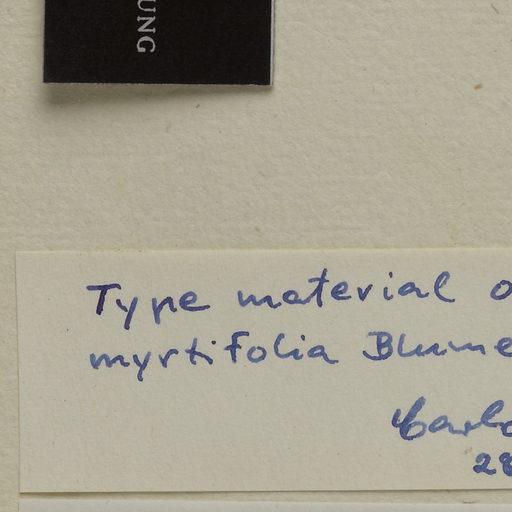 UNG
Type material o
myrtifolia Blume
Carlo
28